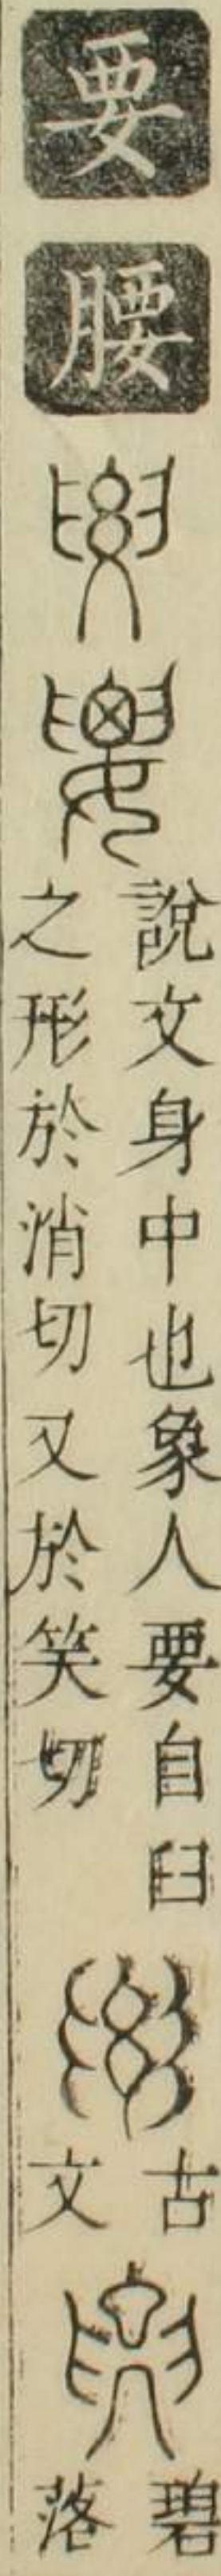 要
腰
說文身中也象人要自𦥑
之形於消切又於笑切
古
文
碧
落